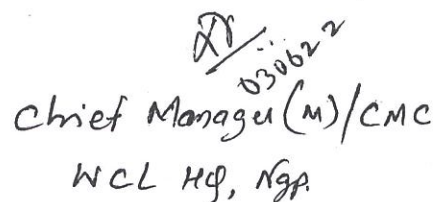 030622
Chief Manager (M)/CMC
WCL HQ, Ngp.